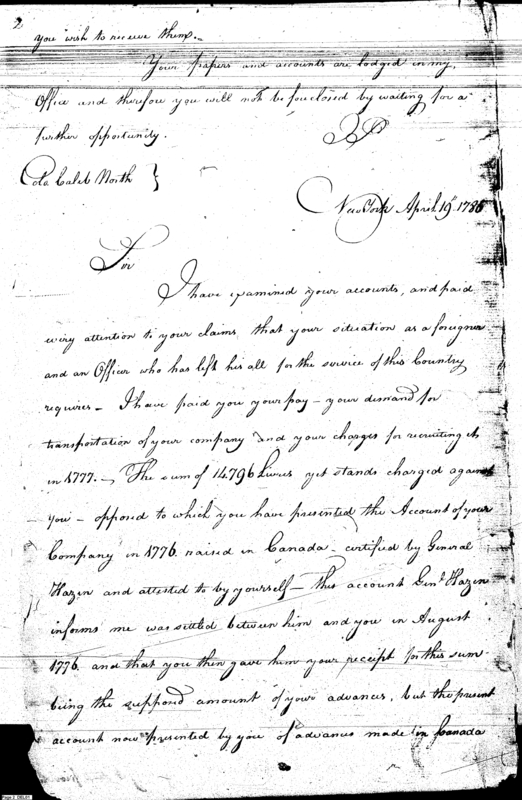 2
you wish to receive them.—
Your papers and accounts are lodged in my
Office and therefore you will not be foreclosed by waiting for a
further opportunity.
Colo Caleb North }
New York April 19th 1786
Sir
I have examined your accounts, and paid
every attention to your claims, that your situation as a foreigner
and an Officer who has left his all for the service of this Country
requires — I have paid you your pay — your demand for
transportation of your company and your charges for recruiting it
in 1777. — The sum of 14.796 Livres yet stands charged against
you — opposed to which you have presented the Account of your
Company in 1776 raised in Canada — certified by General
Hazen and attested to by yourself — This account Genl. Hazen
informs me was settled between him and you in August
1776 and that you then gave him your receipt for this sum
being the supposd amount of your advances, but the present
account now presented by you of advances made in Canada